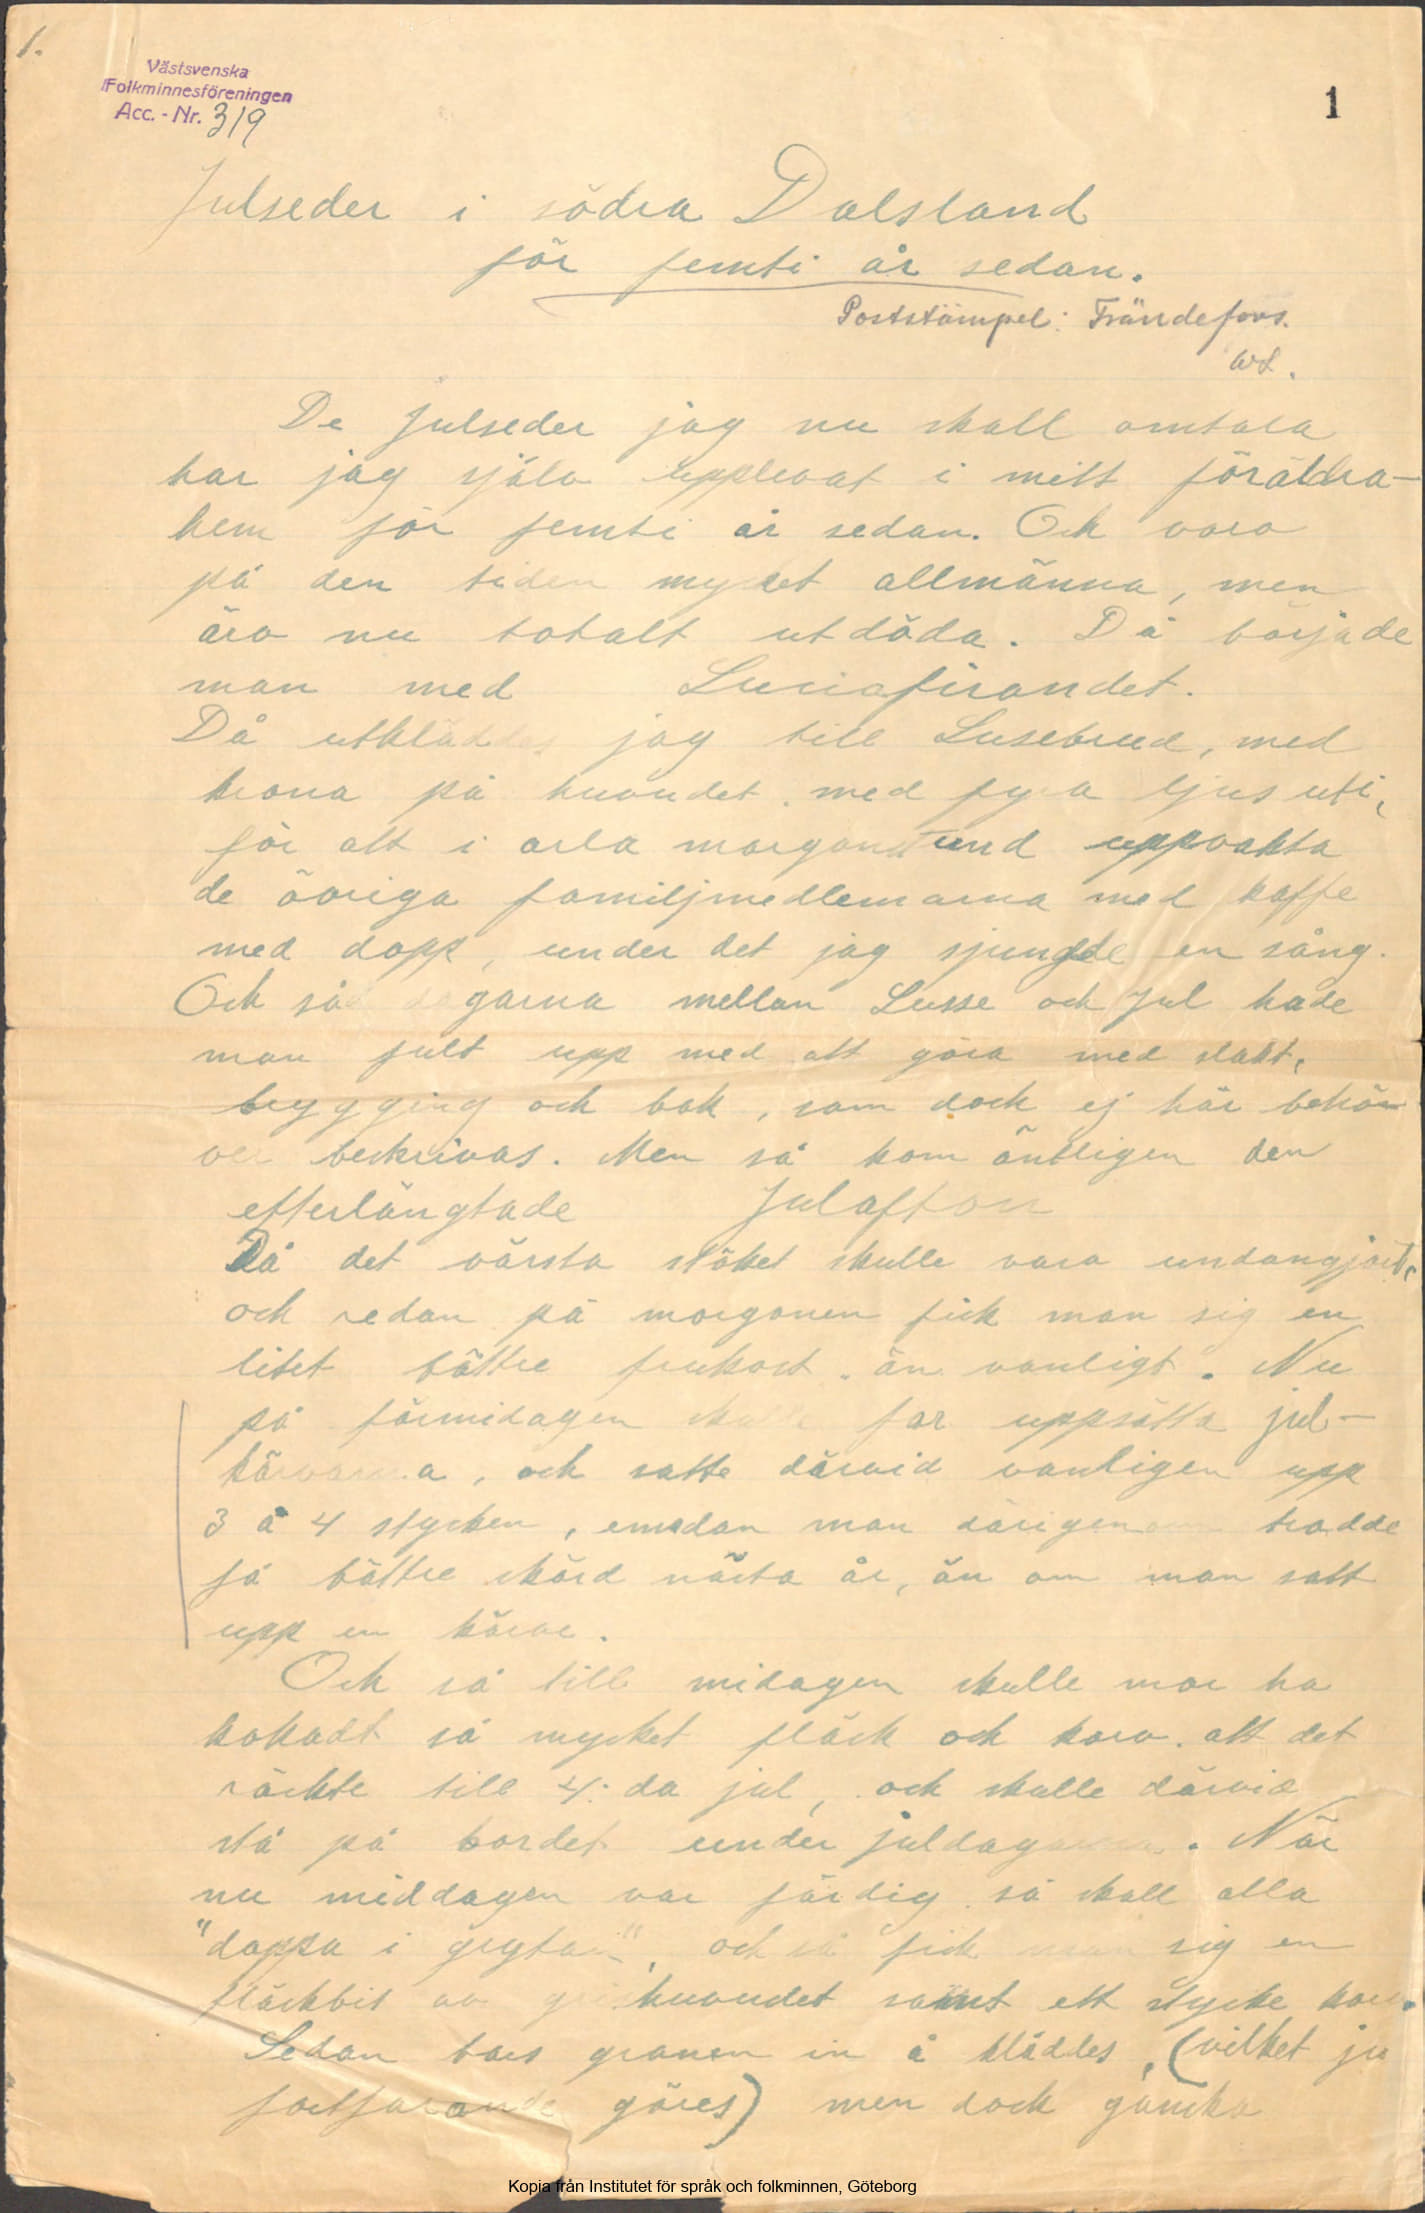 1.
Västsvenska
Folkminnesföreningen
Acc. - Nr. 319
1
Julseder i södra Dalsland
för femti år sedan.
Poststämpel: Frändefors.
De julseder jag nu skall omtala
har jag själv upplevat i mitt föräldra-
hem för femti år sedan. Och voro
på den tiden mycket allmänna, men
äro nu totalt utdöda. Då började
man med Luciafirandet.
Då utkläddes jag till Lusebrud, med
krona på huvudet med fyra ljus uti,
för att i arla morgonstund uppvakta
de övriga familjmedlemarna med kaffe
med dopp, under det jag sjungde en sång.
Och så dagarna mellan Lusse och Jul hade
man fult upp med att göra med slakt,
bryggging och bak, som dock ej här behöv
ver beskrivas. Men så kom äntligen den
efterlängtade Julafton
Då det värsta stöket skulle vara undangjort,
och redan på morgonen fick man sig en
litet bättre frukost än vanligt. Nu
på förmidagen skulle far uppsätta jul-
kärvarna, och satte därvid vanligen upp
3 á 4 stycken, emedan man därigenom trodde
få bättre skörd nästa år, än om man satt
upp en kärve.
Och så till midagen skulle mor ha
kokadt så mycket fläsk och korv att det
räckte till 4:da jul, och skulle därvid
stå på bordet under juldagarna. När
nu middagen var färdig så skall alla
"doppa i grytan", och så fick man sig en
fläskbit av grishuvudet samt ett stycke korv.
Sedan bars granen in å kläddes, (vilket ju
fortfarande göres) men dock ganska
Kopia från Institutet för språk och folkminnen, Göteborg